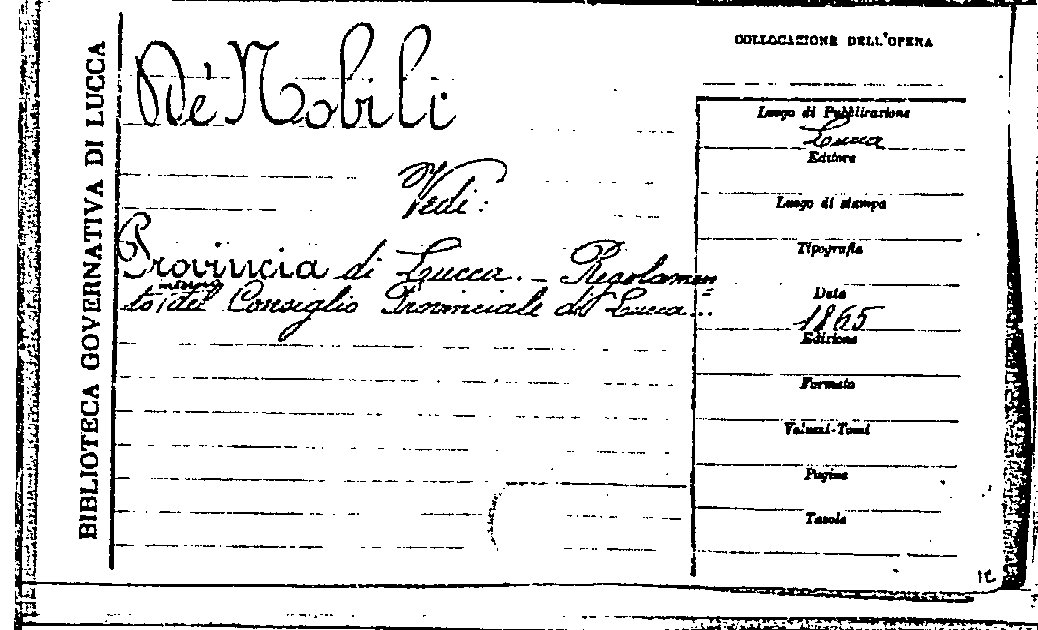 BIBLIOTECA GOVERNATIVA DI LUCCA
De' Nobili
Vedi:
Provincia di Lucca. - Regolamen=
to interno del Consiglio Provinciale di Lucca...
COLLOCAZIONE DELL'OPERA
Luogo di Pubblicazione
Lucca
Editore
Luogo di stampa
Tipografia
Data
1865
Edizione
Formato
Volumi-Tomi
Pagine
Tavole